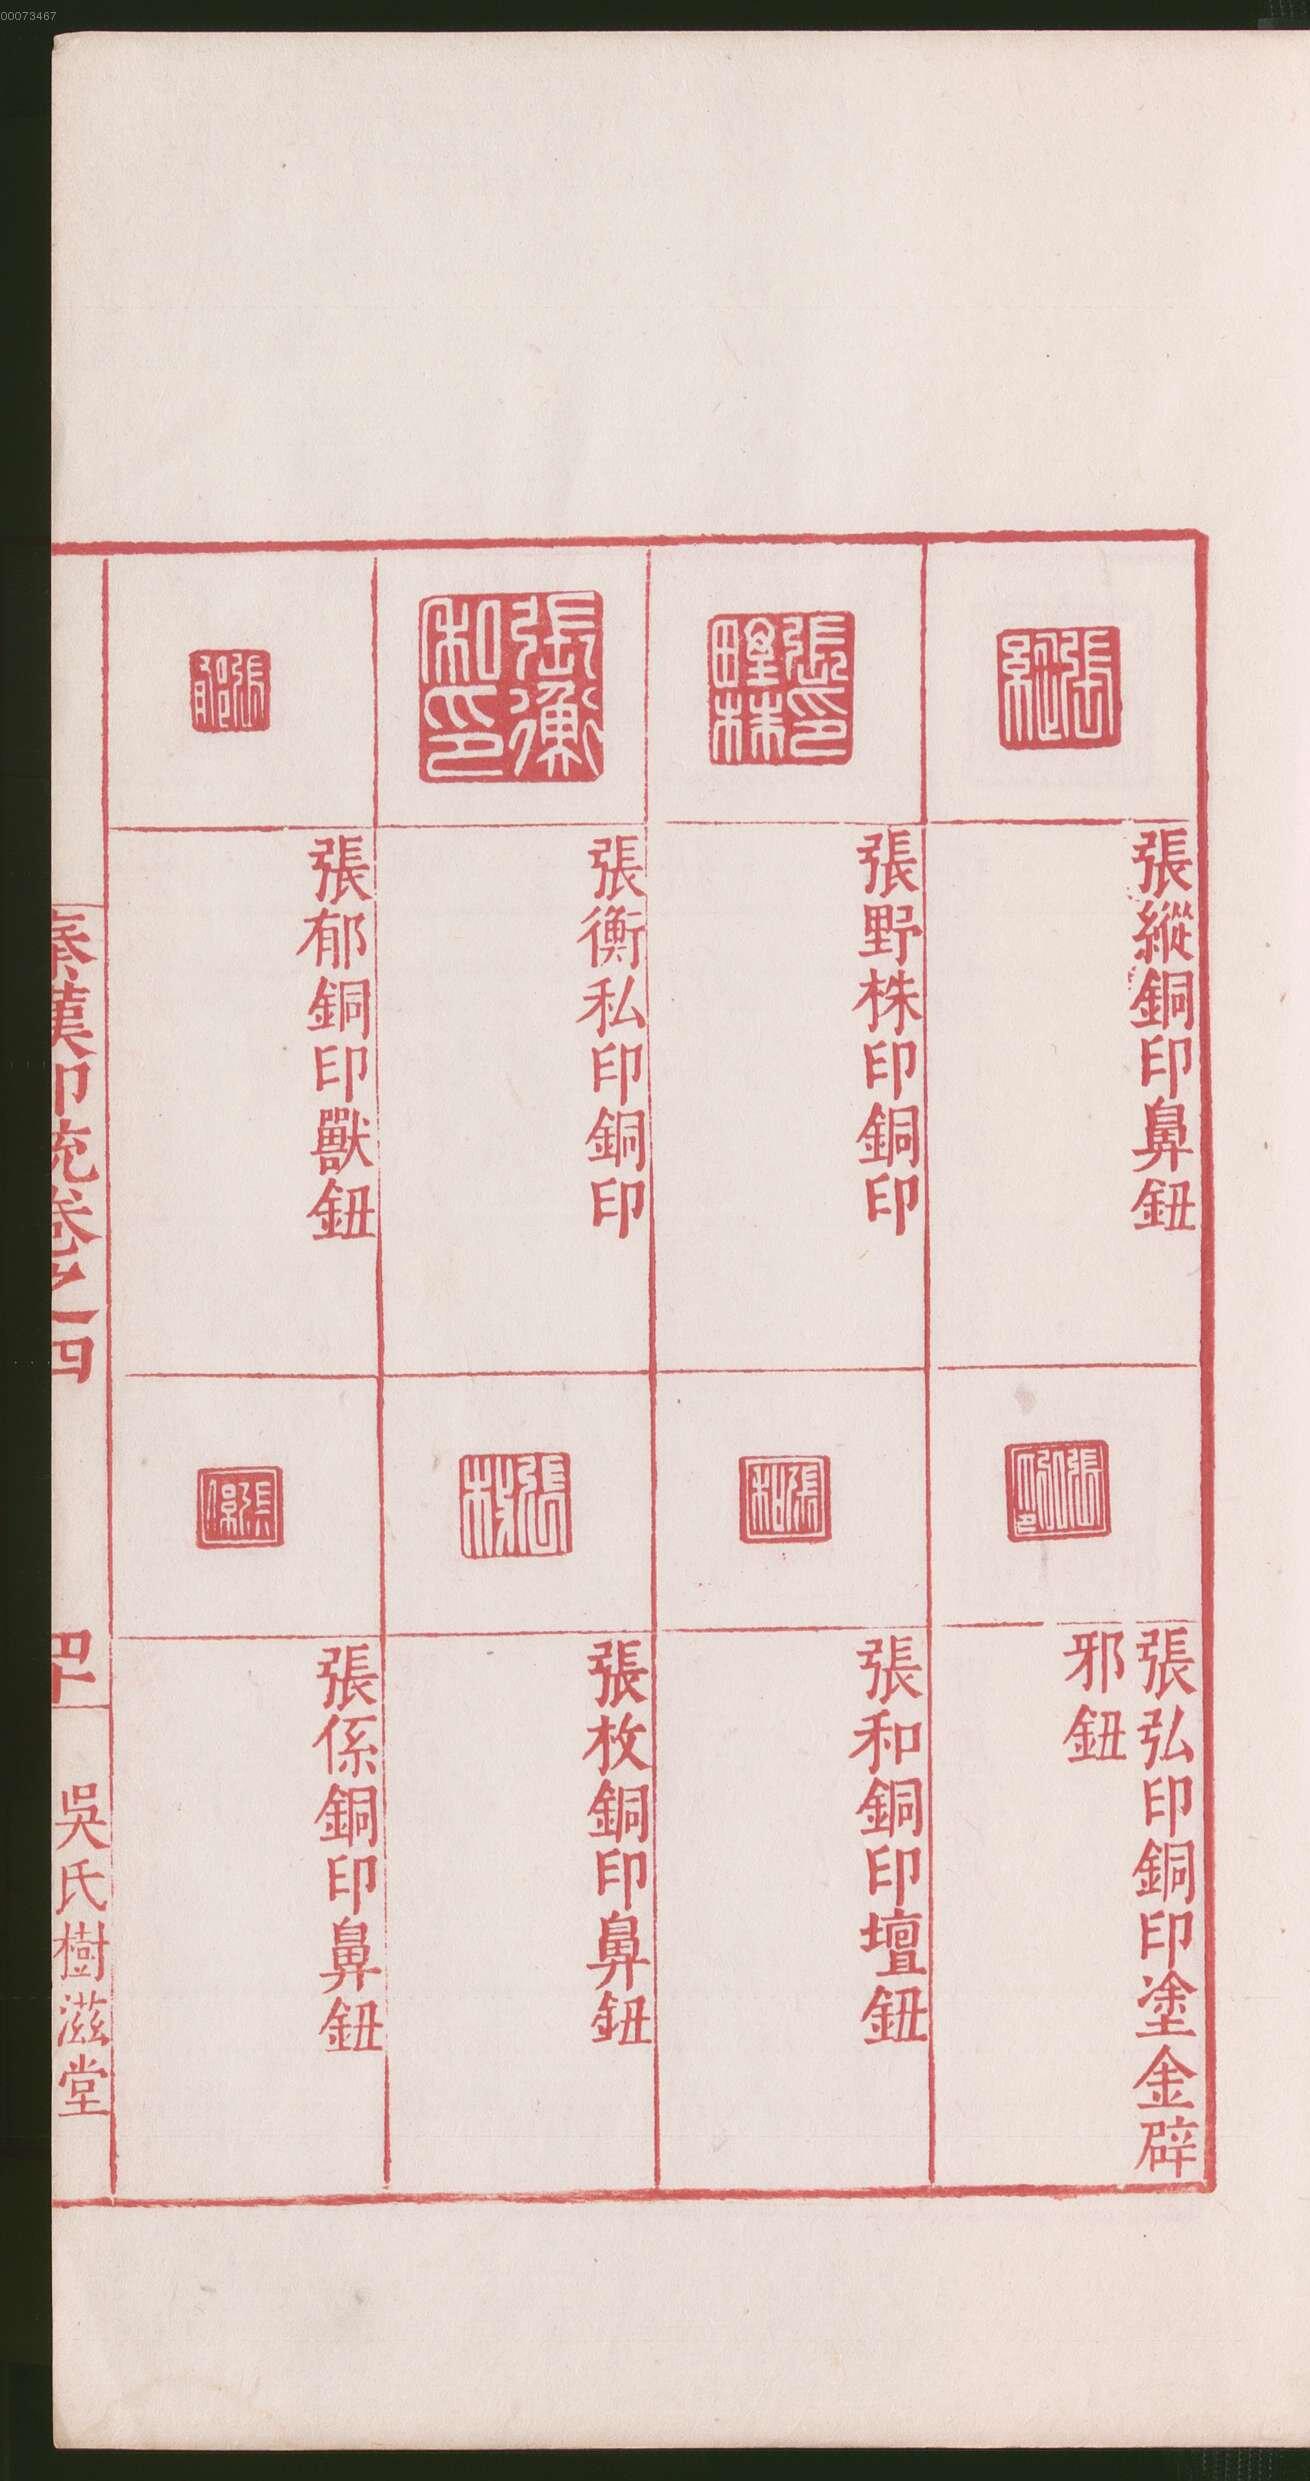 00073467
張縱銅印鼻鈕
張弘印銅印塗金辟
邪鈕
張野株印銅印
張和銅印壇鈕
張衡私印銅印
張枚銅印鼻鈕
張郁銅印獸鈕
張係銅印鼻鈕
秦漢印統卷之四
四十
吳氏樹滋堂